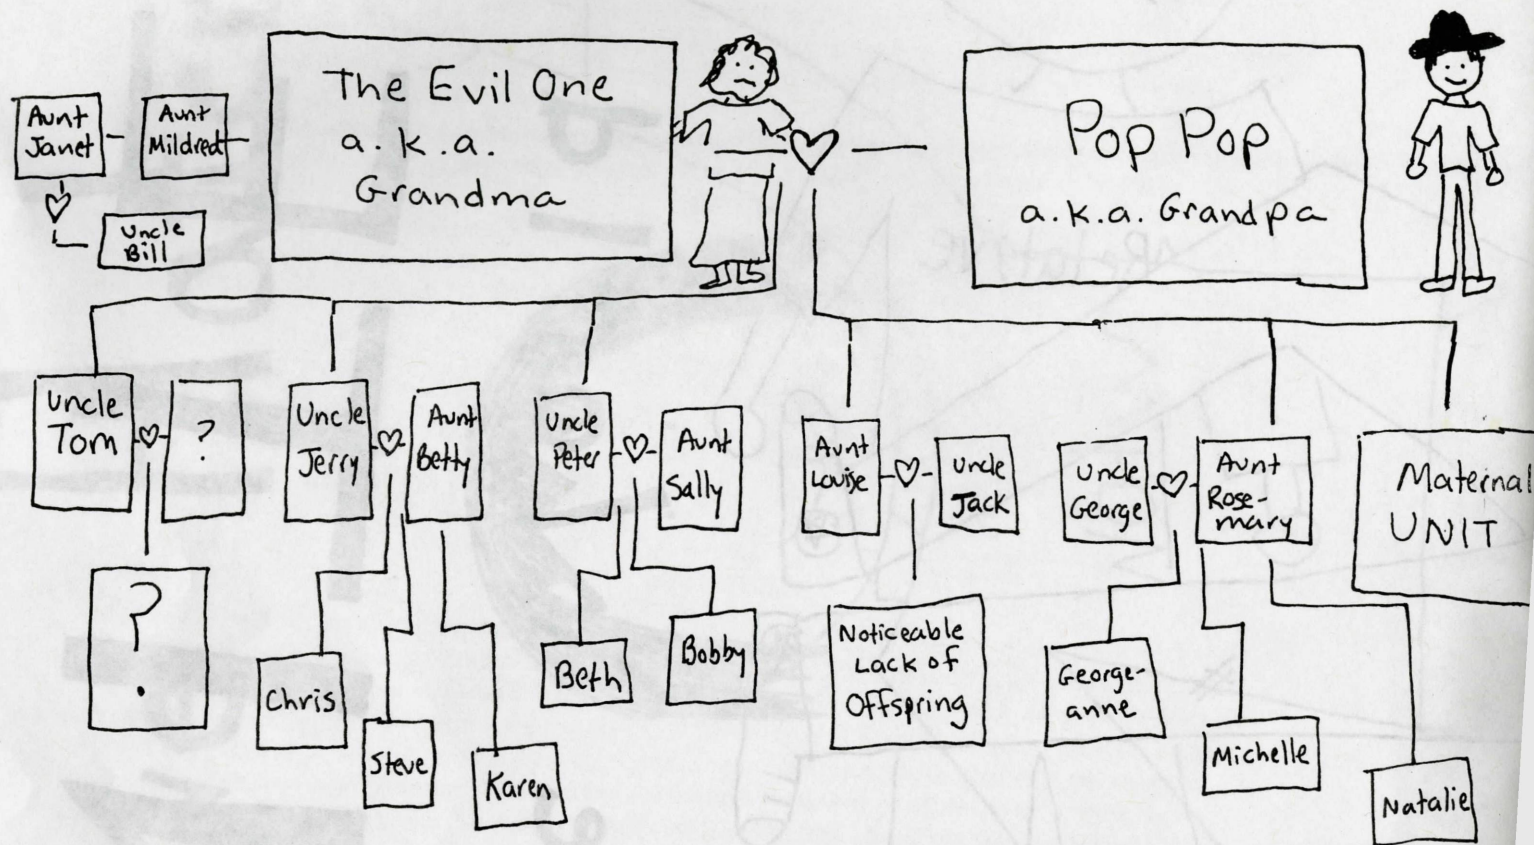 Aunt
Janet
Aunt
Mildred
Uncle
Bill
The Evil One
a.k.a.
Grandma
Pop Pop
a.k.a. Grandpa
Uncle
Tom
?
Uncle
Jerry
Aunt
Betty
Uncle
Peter
Aunt
Sally
Aunt
Louise
Uncle
Jack
Uncle
George
Aunt
Rose-
mary
Maternal
UNIT
?
Chris
Steve
Karen
Beth
Bobby
Noticeable
Lack of
Offspring
George-
anne
Michelle
Natalie